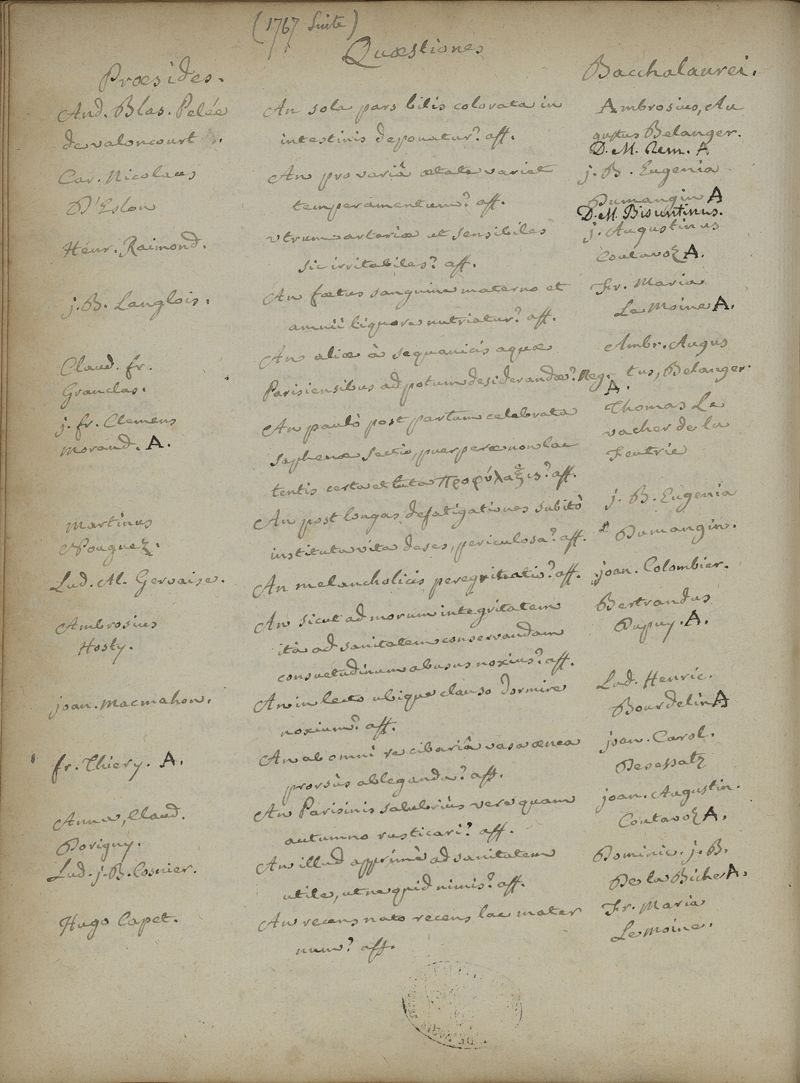 (1767 suite)
Quæstiones
Præsides.
Bacchalaurei.
And. Blas. Pelée
An sola pars bilis colorata in
Ambrosius, Au
de valoncourt.
intestinis deponatur? aff.
gustus Belanger.
D. M. Rem. A
Car. Nicolaus
An pro variâ ætate variet
j. B. Eugenia
D'Eslon
temperamentum? aff.
Dumangin A
D. M. Bisuntinus.
Henr. Raimond.
utrum arteriæ ut sensibiles
j. Augustinus
sic irritabiles? aff.
Coutavoz A.
j. B. Langlois.
An fœtus sanguine materno et
Fr. Maria
amnii liquore nutriatur? aff.
Le Moine A.
Claud. fr.
An aliæ à sequanicis aquæ
Ambr. Augus
Granclas.
Parisiensibus ad potum desiderandæ? Neg.
tus, Belanger.
A.
j. fr. Clemens
An paulò post partum celebrata
Thomas Le
Morand. A.
saphenæ sectio, puerperæ non lac
vacher de la
tentis certa et tuta Προφύλαξις? aff.
Feutrie
Martinus
An post longas defatigationes subitò
j. B. Eugenia
Nouguez.
instituta vita deses, periculosa? aff.
Dumangin.
Lud. Al. Gervaise.
An melancholicis peregrinatio? aff.
joan. Colombier.
Ambrosius
An sicut ad morum integritatem
Bertrandus
Hosty.
ità ad sanitatem conservandam
Dupuy. A.
consuetudinum abusus noxius? aff.
joan. Macmahon.
An in lecto ubique clauso dormire
Lud. Henric.
noxium? aff.
Bourdelin A
fr. Thiery. A.
An ab omni re cibariâ vasa ænea
joan. Carol.
prorsùs ableganda? aff.
Desessatz
Anna, Claud.
An Parisinis salubriùs vere quam
joan. Augustin.
Dorigny.
autumno rusticari? aff.
Coutavoz A.
Lud. j. B. Cosnier.
An illud apprimè ad sanitatem
Dominic. j. B.
utile, ut ne quid nimis? aff.
De la Biche A.
Hugo Capet.
An recens nato recens lac mater
Fr. Maria
num? aff.
Le Moine.